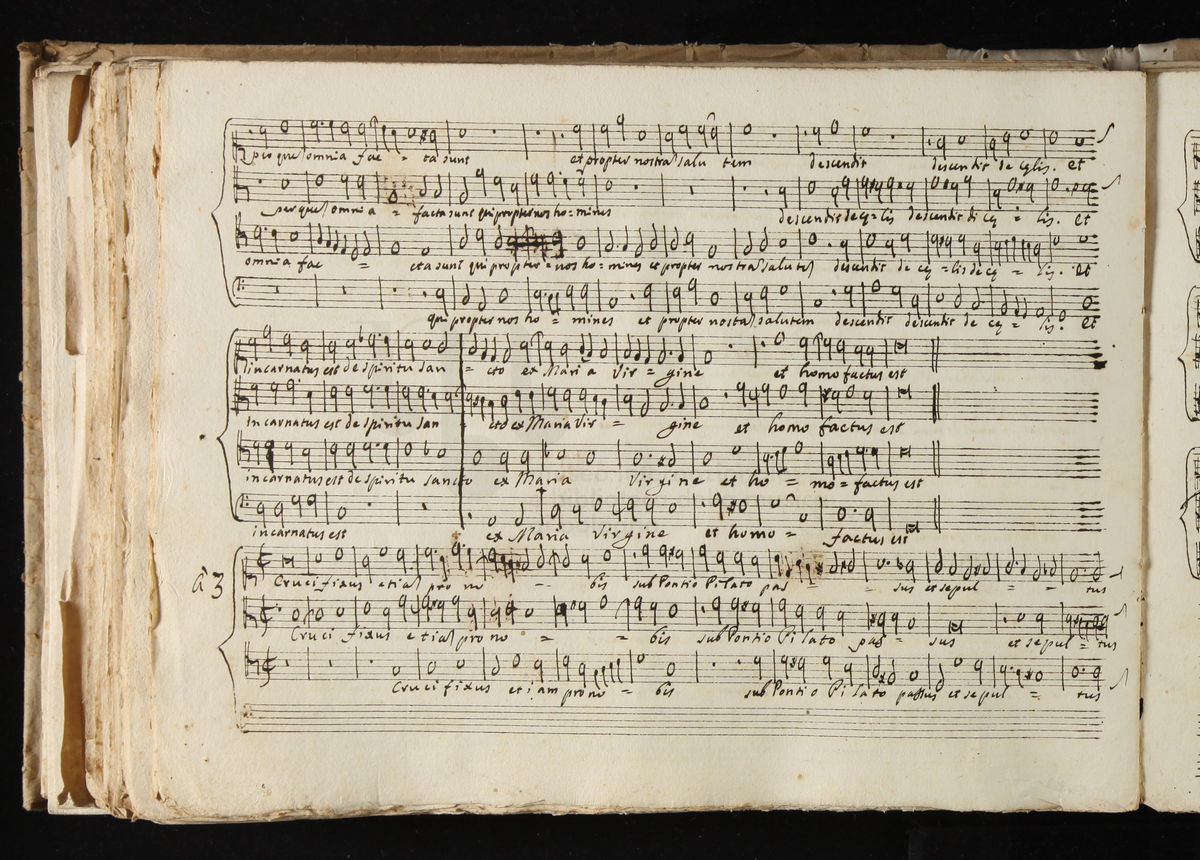 per que omnia fac = ta sunt et propter nostra salu tem descendit descendit de cęlis. et
per que omnia = facta sunt qui propter nos ho = mines descendit de cę = lis descendit di cę = lis. et
omnia fac = cta sunt qui propter = nos ho = mines et propter nostra salute descendit de cę = lis de cę = lis. et
qui propter nos ho = mines et propter nostra salutem descendit descendit de cę = lis. et
incarnatus est de spiritu san = cto ex Maria Vir = gine et homo factus est
incarnatus est de spiritu san = cto ex Maria Vir = gine et homo factus est
incarnatus est de spiritu sancto ex Maria Virgine et ho = mo = factus est
incarnatus est ex Maria Virgine et homo = factus est
à 3
Cruci fixus etia pro no = bis sub Pontio Pilato pas = sus et sepul = tus
Cruci fixus etia pro no = bis sub Pontio Pilato pas = sus et sepul = tus
Cruci fixus et i am pro no = bis sub Pontio Pilato passus et sepul = tus